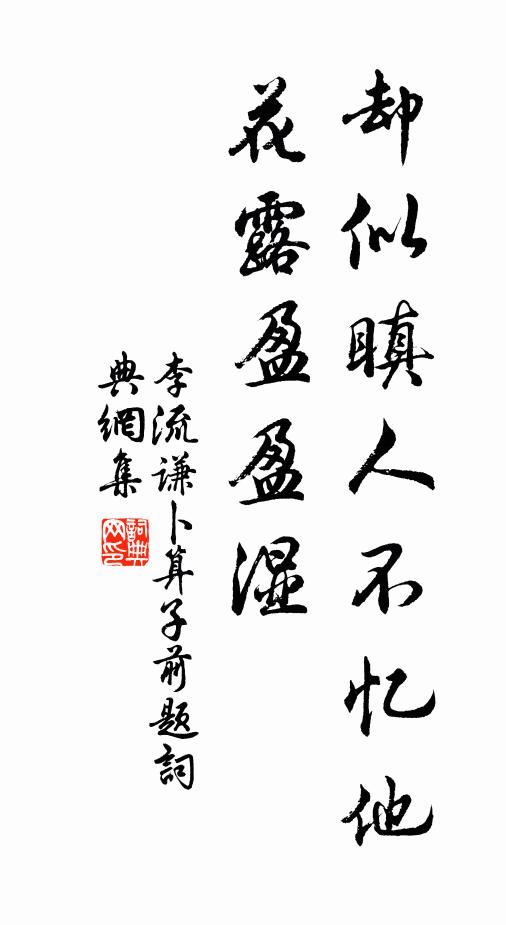 却似瞋人不忆他
花露盈盈湿
李流谦卜算子前题詞
典網集
詞典网印